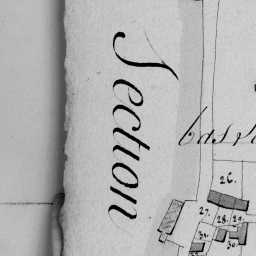 Section
26.
27.
28.
29.
30.